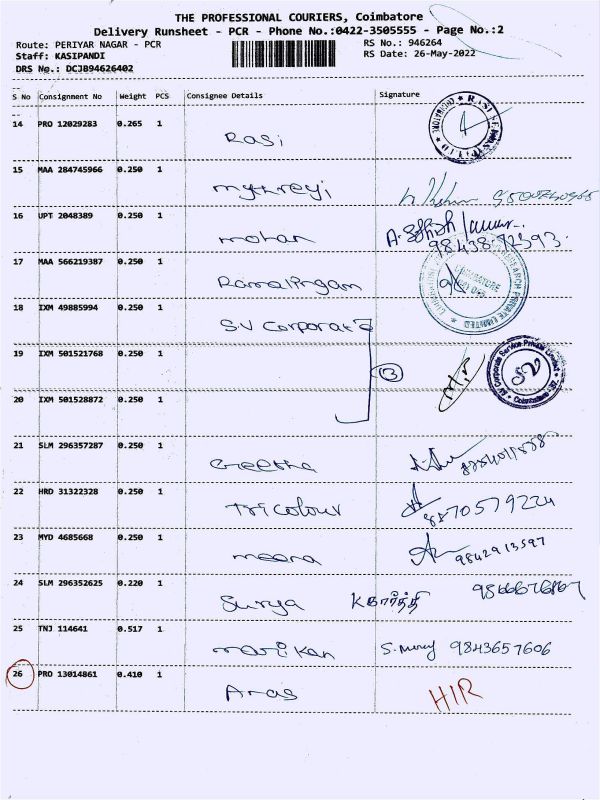 THE PROFESSIONAL COURIERS, Coimbatore
Delivery Runsheet - PCR - Phone No.:0422-3505555 - Page No.:2
Route: PERIYAR NAGAR - PCR RS No.: 946264
Staff: KASIPANDI RS Date: 26-May-2022
DRS No.: DCJB94626402
S No Consignment No Weight PCS Consignee Details Signature
14 PRO 12029283 0.265 1 Rasi
15 MAA 284745966 0.250 1 mythreyi
16 UPT 2048389 0.250 1 mohan 9843872393
17 MAA 566219387 0.250 1 Ramalingam
COIMBATORE
18 IXM 49885994 0.250 1 SV Corporate
19 IXM 501521768 0.250 1 3
SV Corporate Service Private Limited
SV
Coimbatore
20 IXM 501528872 0.250 1
21 SLM 296357287 0.250 1 Geetha
22 HRD 31322328 0.250 1 Tricolour 8870579224
23 MYD 4685668 0.250 1 meena 9842913597
24 SLM 296352625 0.220 1 Surya K கார்த்தி
25 TNJ 114641 0.517 1 manikan 9843657606
26 PRO 13014861 0.410 1 Aras HIR